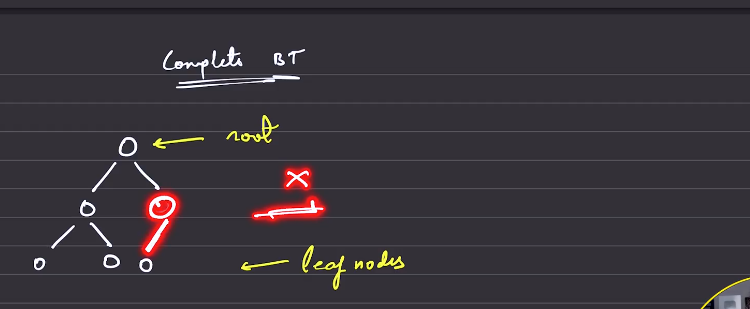 Complete BT
root
X
leaf nodes